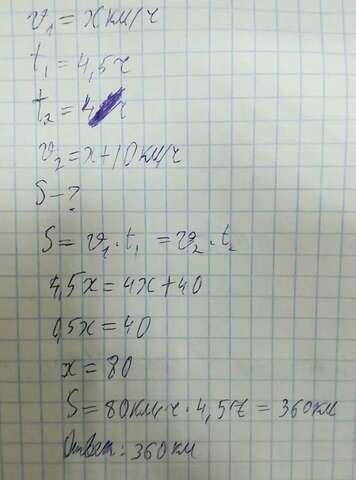 v₁ = x км/ч
t₁ = 4,5 ч
t₂ = 4 ч
v₂ = x+10 км/ч
S – ?
S = v₁ · t₁ = v₂ · t₂
4,5x = 4x + 40
0,5x = 40
x = 80
S = 80 км/ч · 4,5 ч = 360 км
Ответ: 360 км